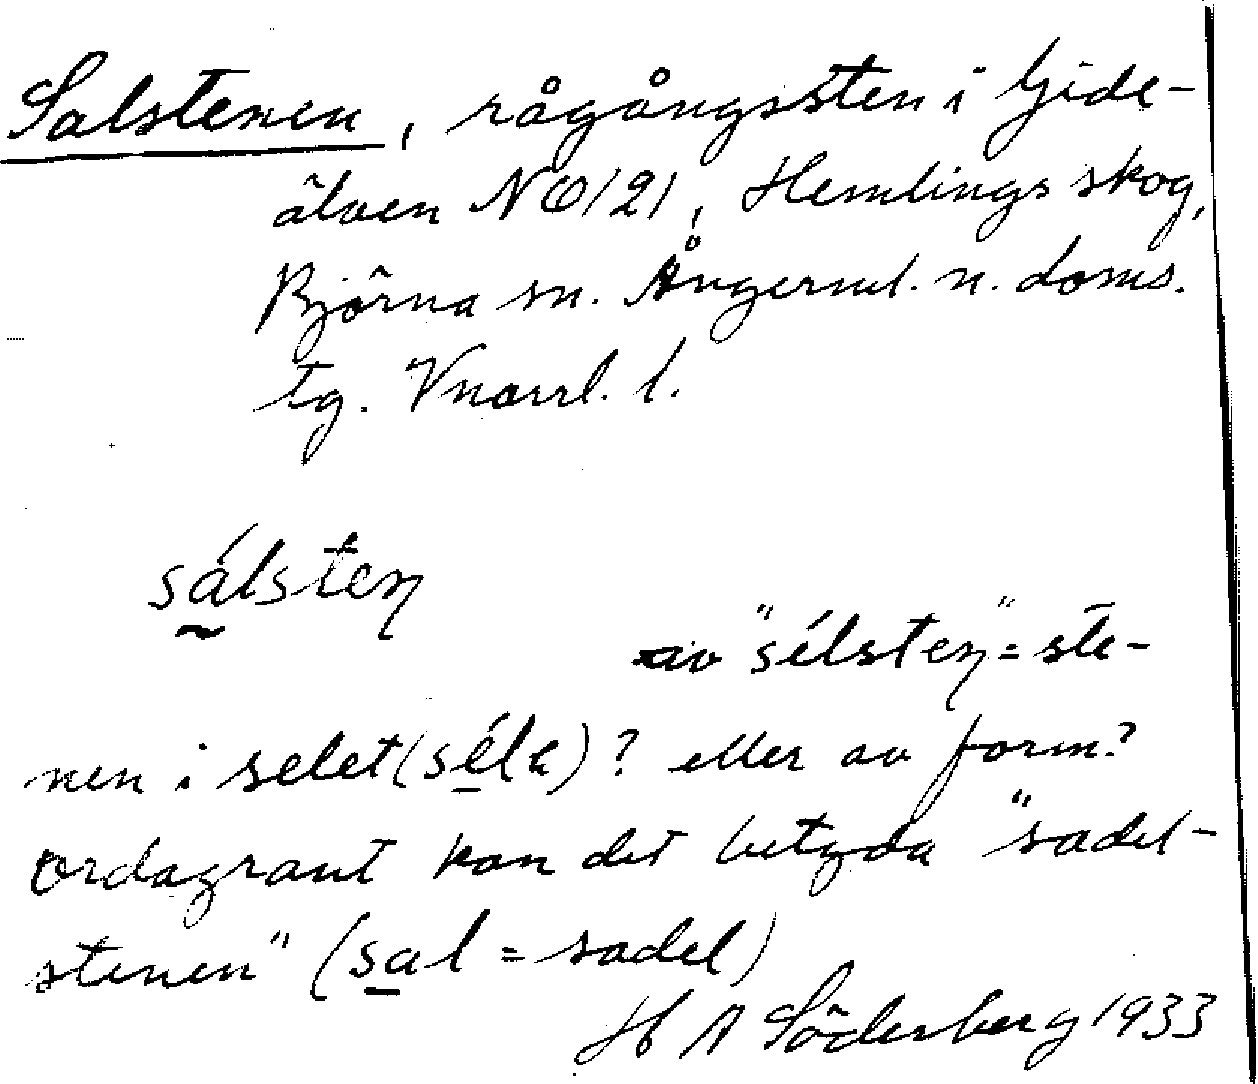 Salstenen, rågångssten i Gide-
älven NO/21, Hemlings skog,
Björna sn. Ångerml. n. doms.
tg. Vnorrl. l.
sálsteṇ
av "sélsteṇ" = ste-
nen i selet (séla)? eller av form?
Ordagrant kan det betyda "sadel-
stenen" (sal = sadel)
H A Söderberg 1933